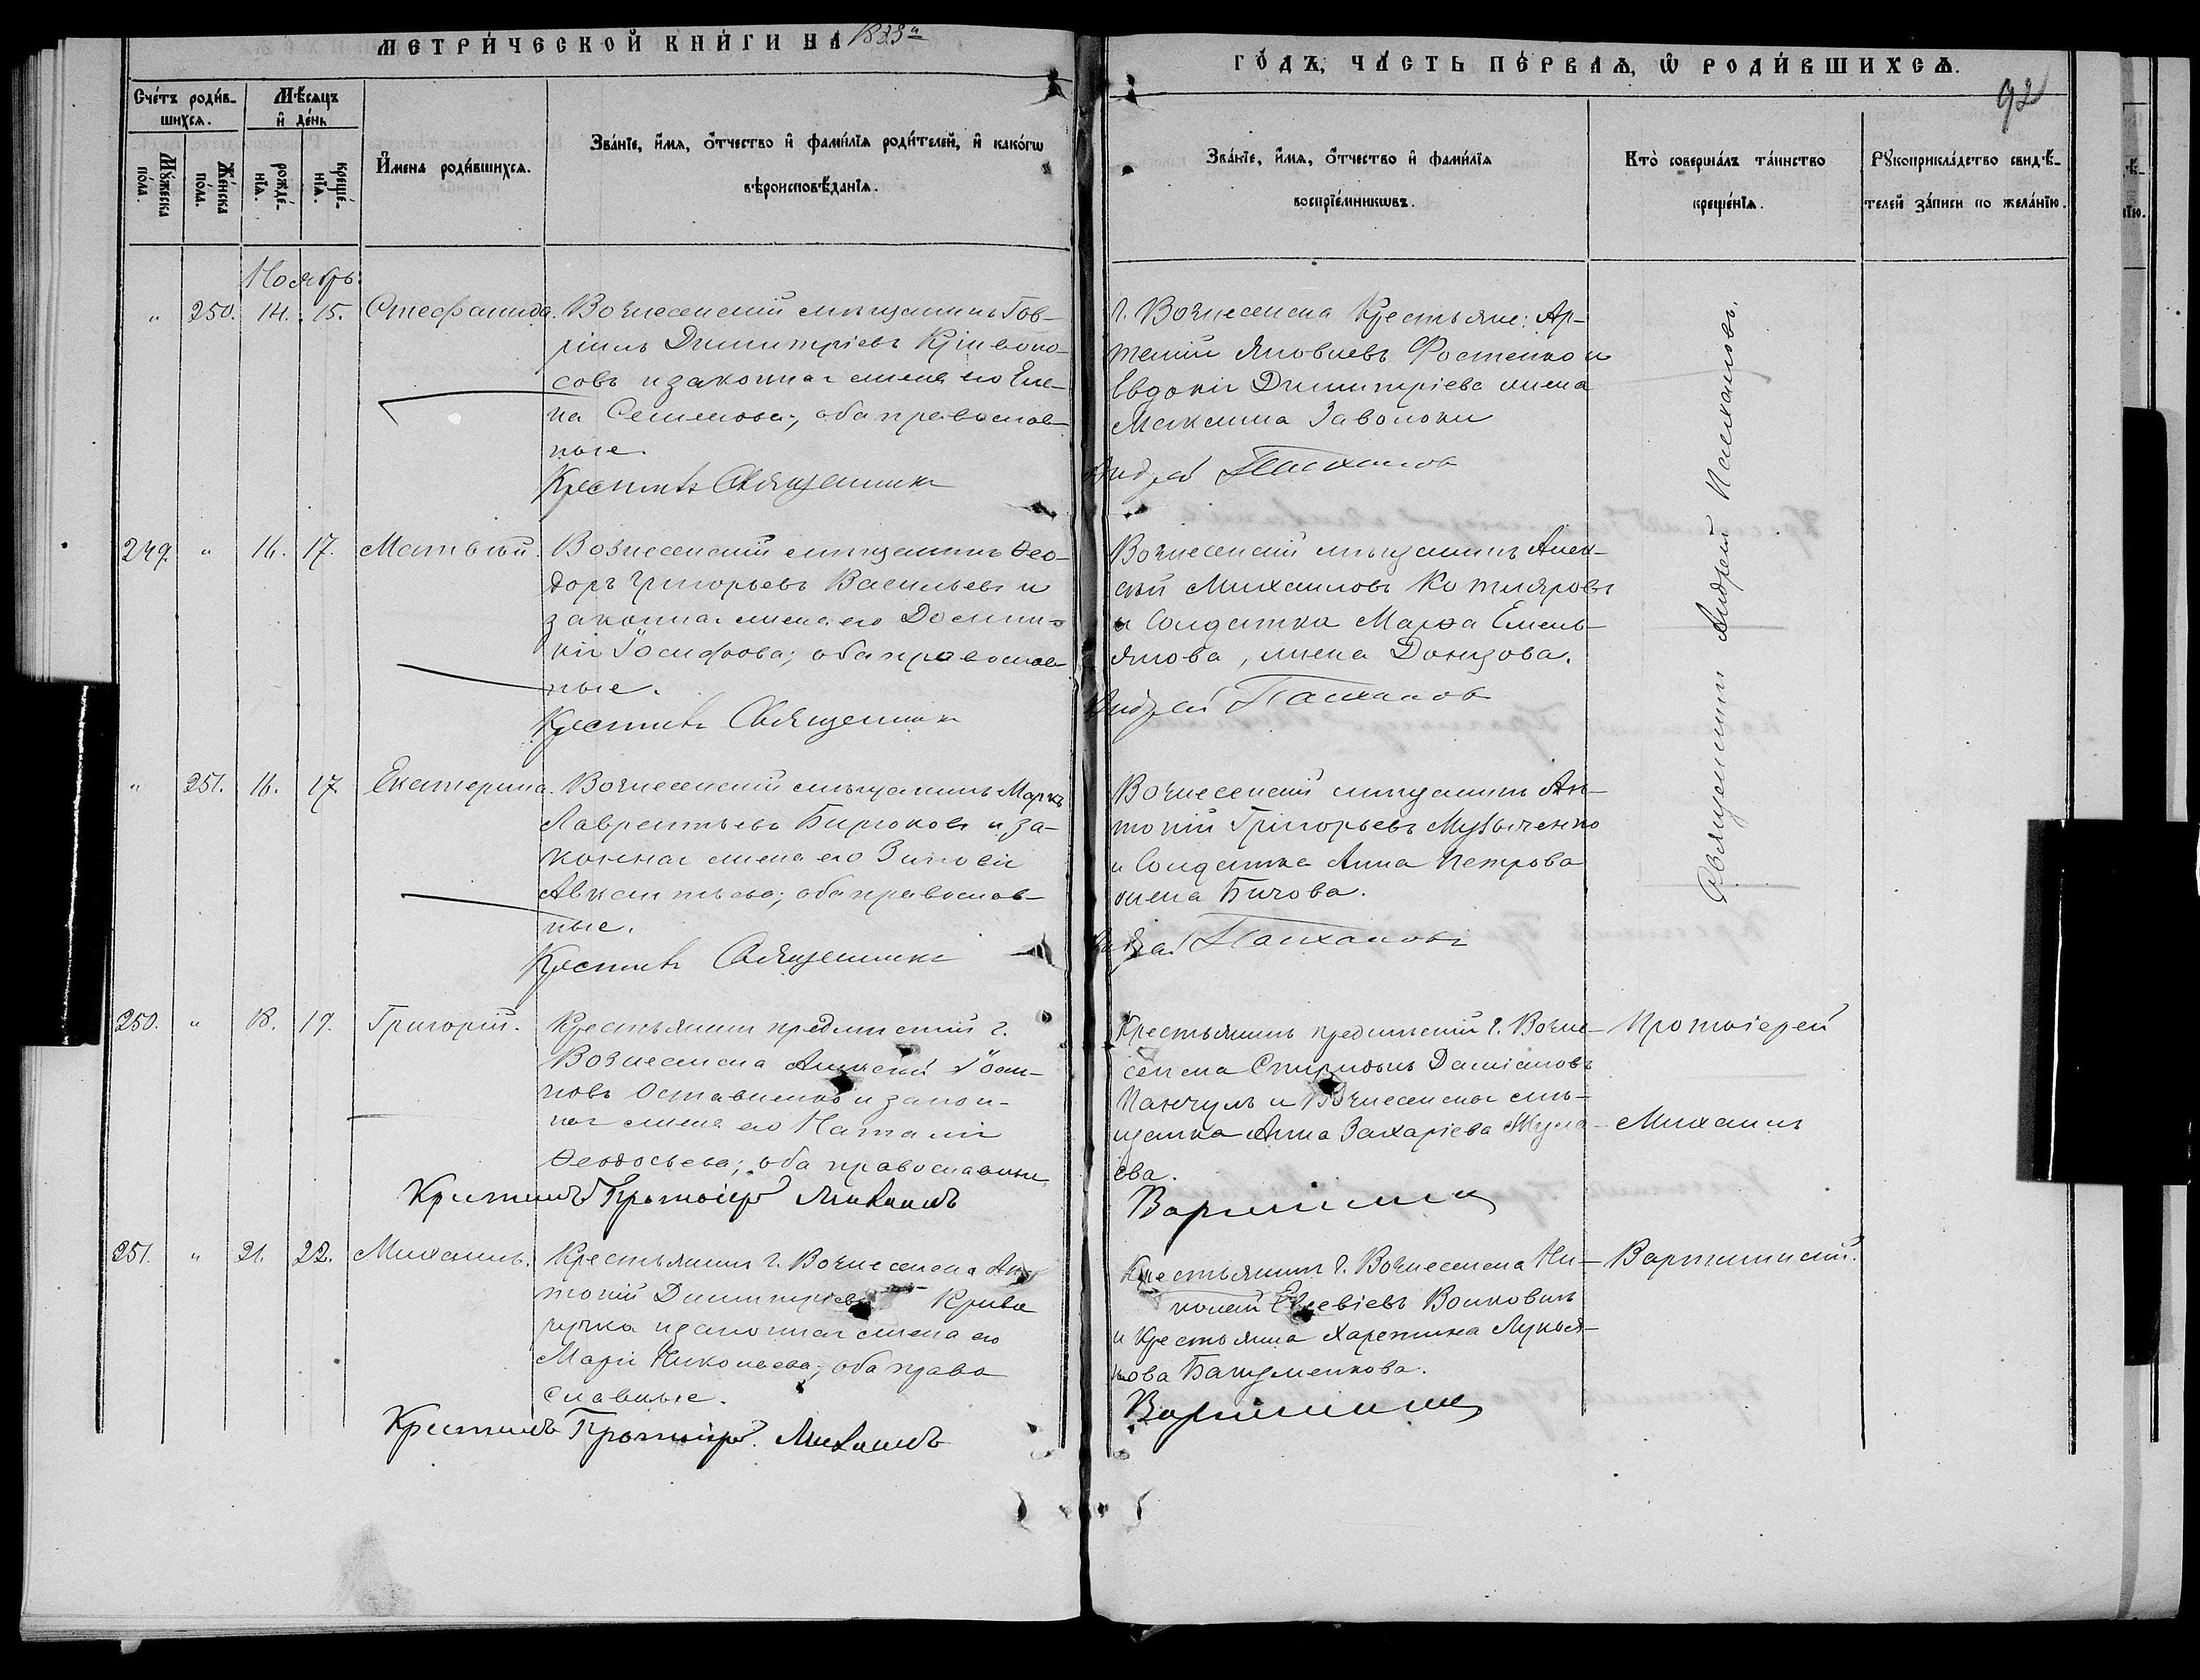 МЕТРИ́ЧЕСКОЙ КНИ́ГИ НА 1883й
ГО́ДЪ, ЧА́СТЬ ПЕ́РВАѦ, Ѡ РОДИ́ВШИХСѦ.
92
Сче́тъ роди́в-
шихсѧ.
Мꙋ́жеска
по́ла.
Же́нска
по́ла.
Мѣ́сѧцъ
и҆ де́нь
рожде́-
нїѧ.
креще́-
нїѧ.
И҆мена роди́вшихсѧ.
Зва́нїе, и҆́мѧ, о҆́тчество и҆ фами́лїѧ роди́телей, и҆ како́гѡ
вѣроисповѣ́данїѧ.
Зва́нїе, и҆́мѧ, о҆́тчество и҆ фами́лїѧ
воспрїе́мникѡвъ.
Кто̀ соверша́лъ та́инство
креще́нїѧ.
Рꙋкоприкла́дство свидѣ́-
телей за́писи по жела́нїю.
Ноябрь.
" 250. 14. 15. Стефанида. Вознесенскій мѣщанинъ Гав-
ріилъ Димитріевъ Кривоно-
совъ и законная жена его Еле-
на Семенова; оба православ-
ные.
Крестилъ Священникъ
г. Вознесенска Крестьяне: Ар-
темій Яковлевъ Фостенко и
Евдокія Димитріева жена
Максима Заволоки
Андрей Палхановъ
Священникъ Андрей Палхановъ.
249. " 16. 17. Матвѣй. Вознесенскій мѣщанинъ Ѳео-
доръ Григорьевъ Васильевъ и
законная жена его Домни-
кія Іосифова; оба православ-
ные.
Крестилъ Священникъ
Вознесенскій мѣщанинъ Алек-
сѣй Михаиловъ Котляровъ
и Солдатка Марѳа Емель-
янова, жена Донцова.
Андрей Палханов
" 251. 16. 17. Екатерина. Вознесенскій мѣщанинъ Маркъ
Лаврентьевъ Бирюковъ и за-
конная жена его Зиновія
Авксентьева; оба православ-
ные.
Крестилъ Священникъ
Вознесенскій мѣщанинъ Ан-
тоній Григорьевъ Музыченко
и Солдатка Анна Петрова
жена Бичова.
Андрей Палхановъ
250. " 18. 19. Григорій. Крестьянинъ предмѣстій г.
Вознесенска Алексѣй Іоси-
повъ Оставненко и закон-
ная жена его Наталія
Ѳеодосьева; оба православные
Крестилъ Протоіерей Михаилъ
Крестьянинъ предмѣстій г. Возне-
сенска Спиридонъ Даміановъ
Панчулъ и Вознесенская мѣ-
щанка Анна Захаріева
ева.
Протоіерей
Михаилъ
Вартминскій.
251. " 21. 22. Михаилъ. Крестьянинъ г. Вознесенска Ан-
тоній Димитріевъ Криво
ручка и законная жена его
Марія Николаева; оба право
славные.
Крестилъ Протоіерей Михаилъ
Крестьянинъ г. Вознесенска Ни-
колай Евсевіевъ Волковинъ
и Крестьянка Харитина Лукья-
нова Башуменкова.